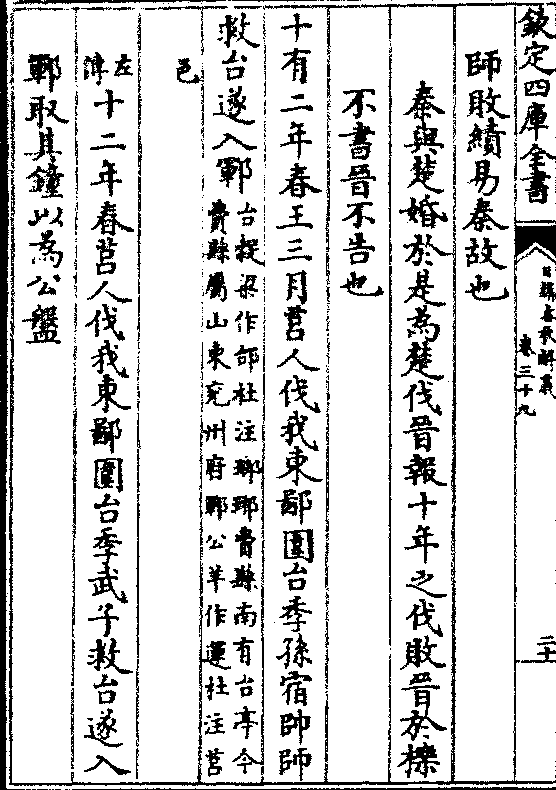 欽定四庫全書
日講春秋解義
卷三十九
二十
師敗績易秦故也
秦與楚婚於是為楚伐晉報十年之伐敗晉於櫟
不書晉不告也
十有二年春王三月莒人伐我東鄙圍台季孫宿帥師
救台遂入鄆
台穀梁作邰杜注琅琊費縣南有台亭今
費縣屬山東兗州府鄆公羊作運杜注莒
邑
左傳
十二年春莒人伐我東鄙圍台季武子救台遂入
鄆取其鐘以為公盤